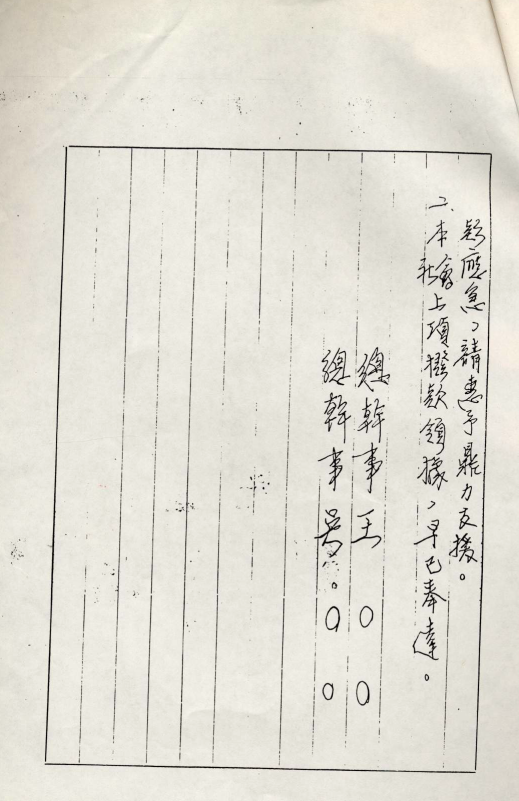 款應急,請惠予鼎力支援。
二、本會社上項撥款領據,早已奉達。
總幹事王○○
總幹事吳○○